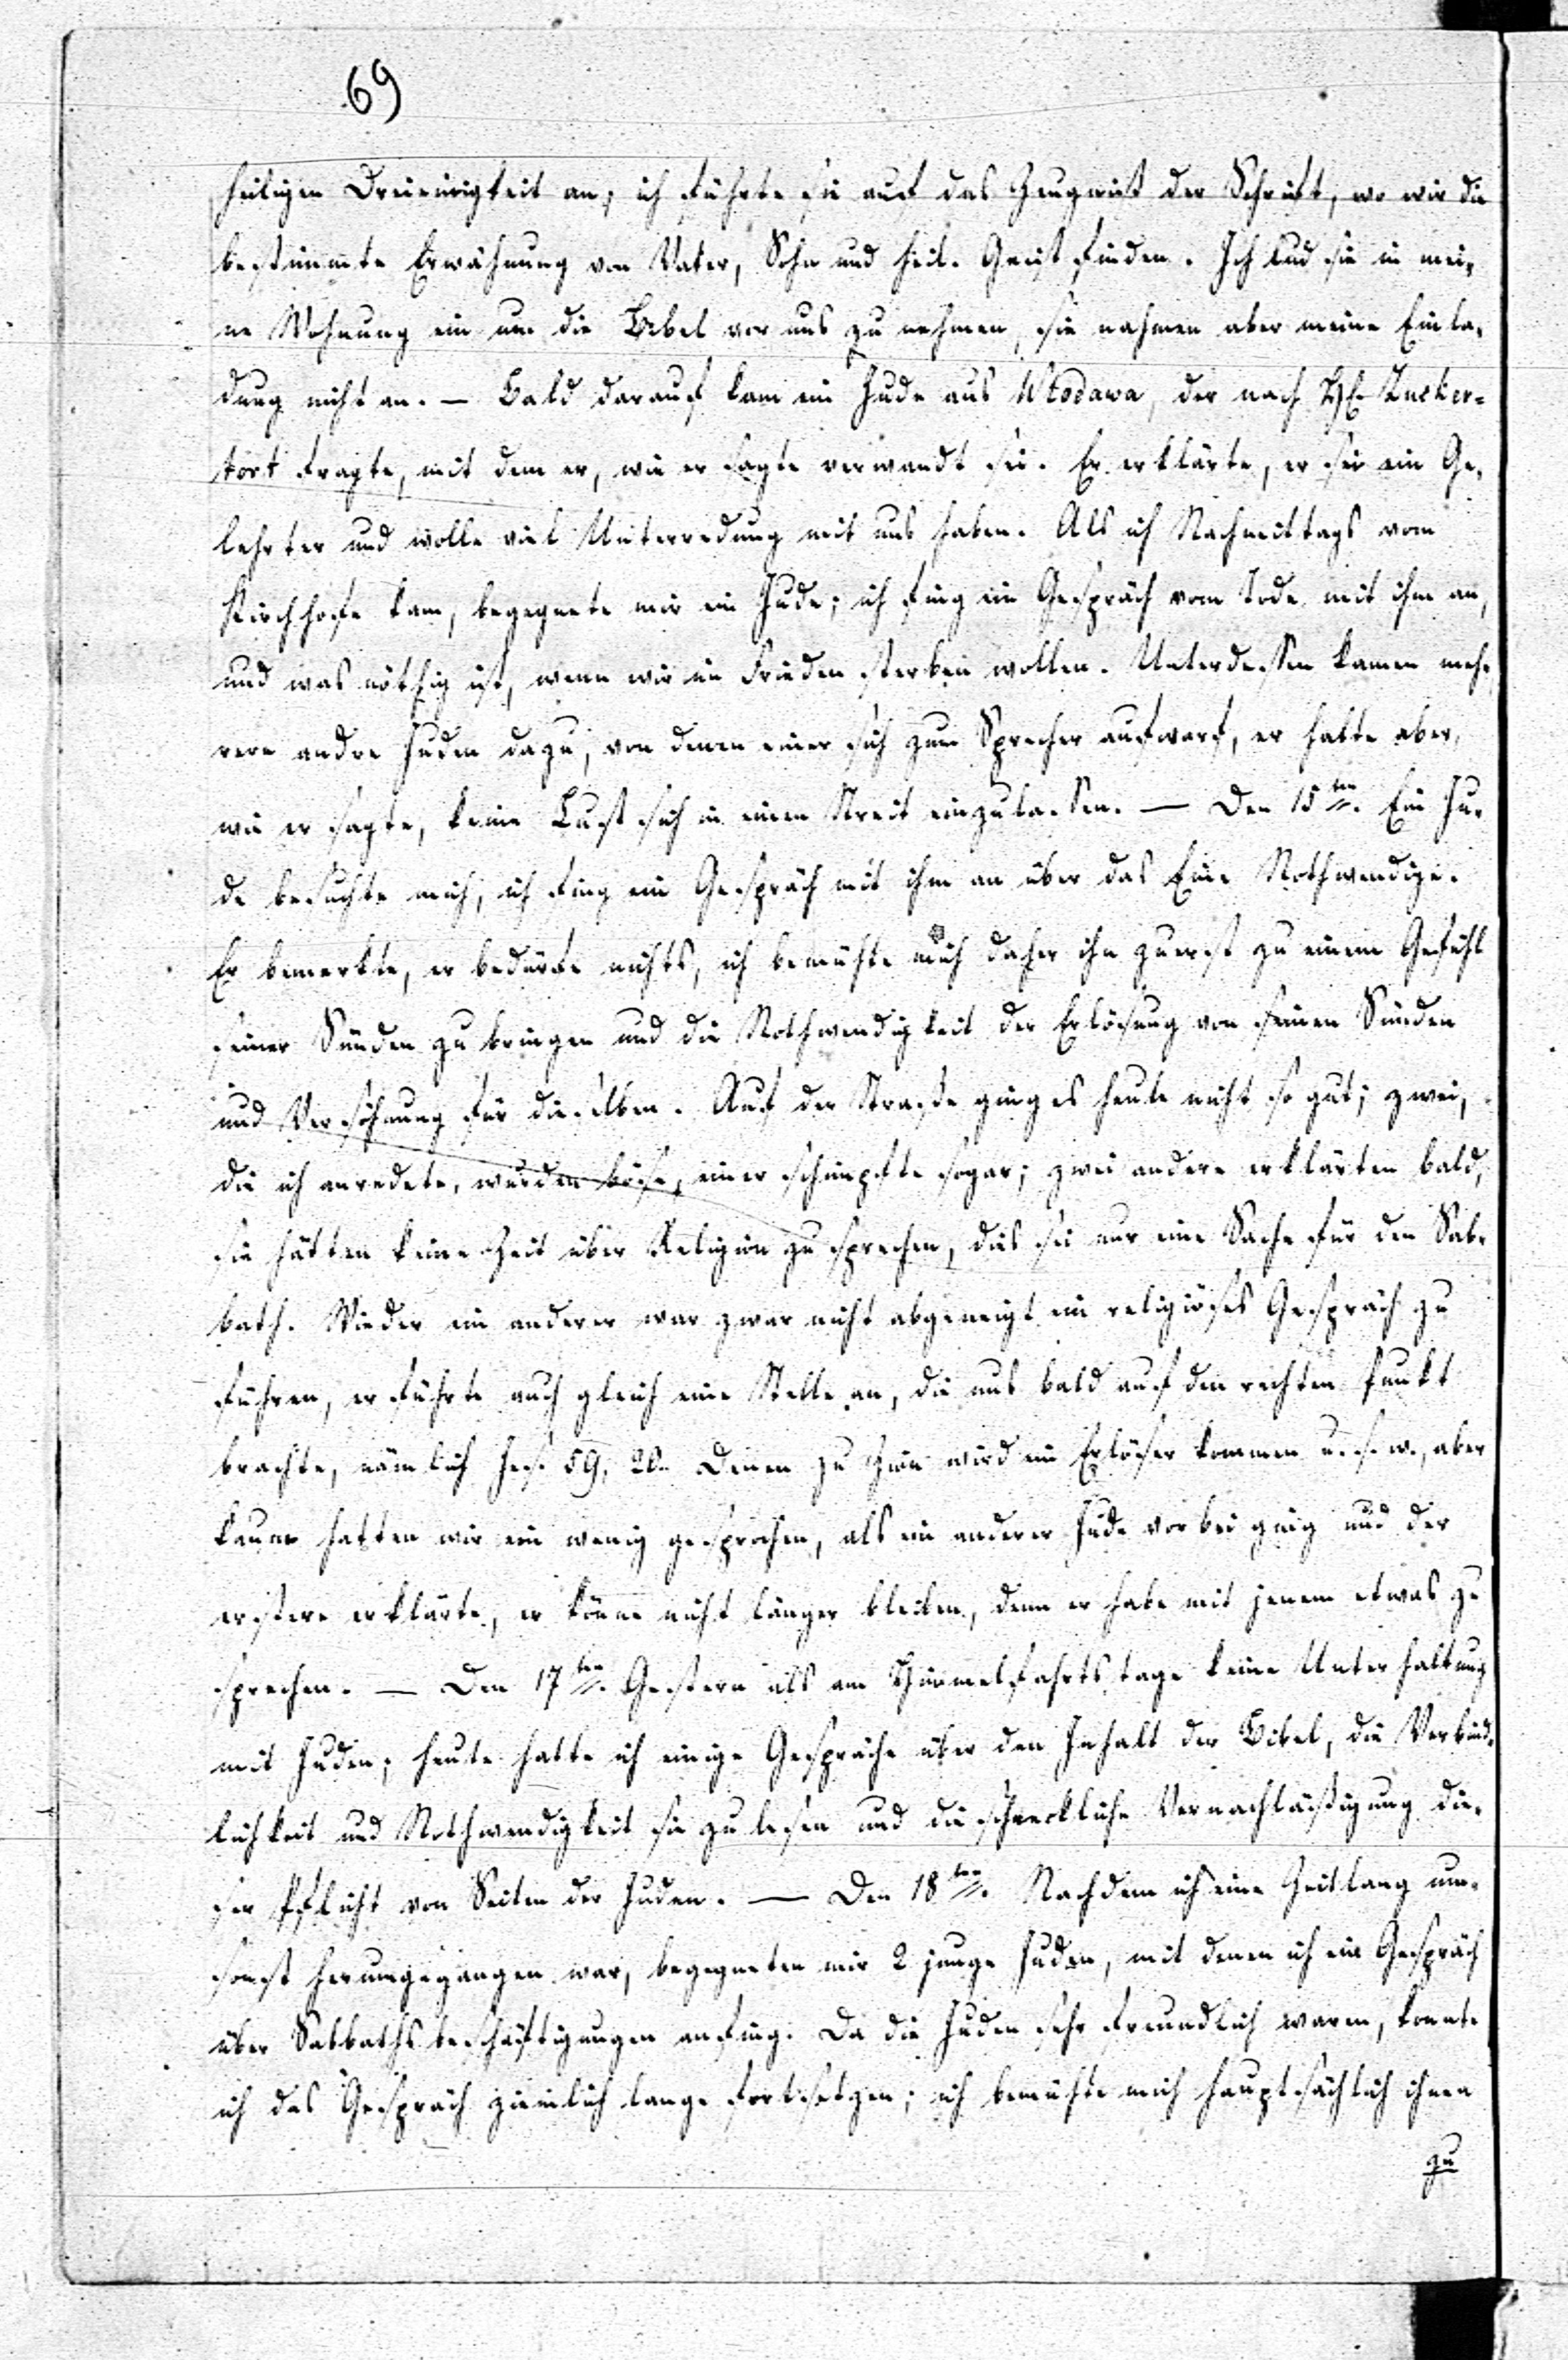 69
heiligen Dreieinigkeit an; ich führte sie auf das Zeugniß der Schrift, wo wir die
bestimmte Erwähnung von Vater, Sohn und heil. Geist finden. Ich lud sie in mei-
ne Wohnung ein um die Bibel vor uns zu nehmen, sie nahmen aber meine Einla-
dung nicht an. — Bald darauf kam ein Jude aus Włodawa, der nach H. Zucker-
tort fragte, mit dem er, wie er sagte verwandt sei. Er erklärte, er sei ein Ge-
lehrter und wolle viel Unterredung mit uns haben. Als ich Nachmittags vom
Kirchhofe kam, begegnete mir ein Jude; ich fing ein Gespräch vom Tode mit ihm an,
und was nöthig ist, wenn wir in Frieden sterben wollen. Unterdessen kamen meh-
rere andre Juden dazu, von denen einer sich zum Sprecher aufwarf, er hatte aber,
wie er sagte, keine Lust sich in einen Streit einzulassen. — Den 15ten. Ein Ju-
de besuchte mich, ich fing ein Gespräch mit ihm an über das Eine Nothwendige.
Er bemerkte, er bedürfe nichts, ich bemühte mich daher ihn zuerst zu einem Gefühl
seiner Sünden zu bringen und die Nothwendigkeit der Erlösung von seinen Sünden
und Versöhnung für dieselben. Auf der Straße ging es heute nicht so gut; zwei,
die ich anredete, wurden böse, einer schimpfte sogar; zwei andere erklärten bald,
sie hätten keine Zeit über Religion zu sprechen, dies sei nur eine Sache für den Sab-
bath. Wieder ein anderer war zwar nicht abgeneigt ein religiöses Gespräch zu
führen, er führte auch gleich eine Stelle an, die uns bald auf den rechten Punkt
brachte, nämlich Jes. 59, 20. Denen zu Zion wird ein Erlöser kommen u. s. w., aber
kaum hatten wir ein wenig gesprochen, als ein anderer Jude vorbei ging und der
erstere erklärte, er könne nicht länger bleiben, denn er habe mit jenem etwas zu
sprechen. — Den 17ten. Gestern als am Himmelfahrtstage keine Unterhaltung
mit Juden; heute hatte ich einige Gespräche über den Inhalt der Bibel, die Verbind-
lichkeit und Nothwendigkeit sie zu lesen und die schreckliche Vernachläßigung die-
ser Pflicht von Seiten der Juden. — Den 18ten. Nachdem ich eine Zeitlang um-
sonst herumgegangen war, begegneten mir 2 junge Juden, mit denen ich ein Gespräch
über Sabbathsbeschäftigungen anfing. Da die Juden sehr freundlich waren, konnte
ich das Gespräch ziemlich lange fortsetzen; ich bemühte mich hauptsächlich ihnen
zu